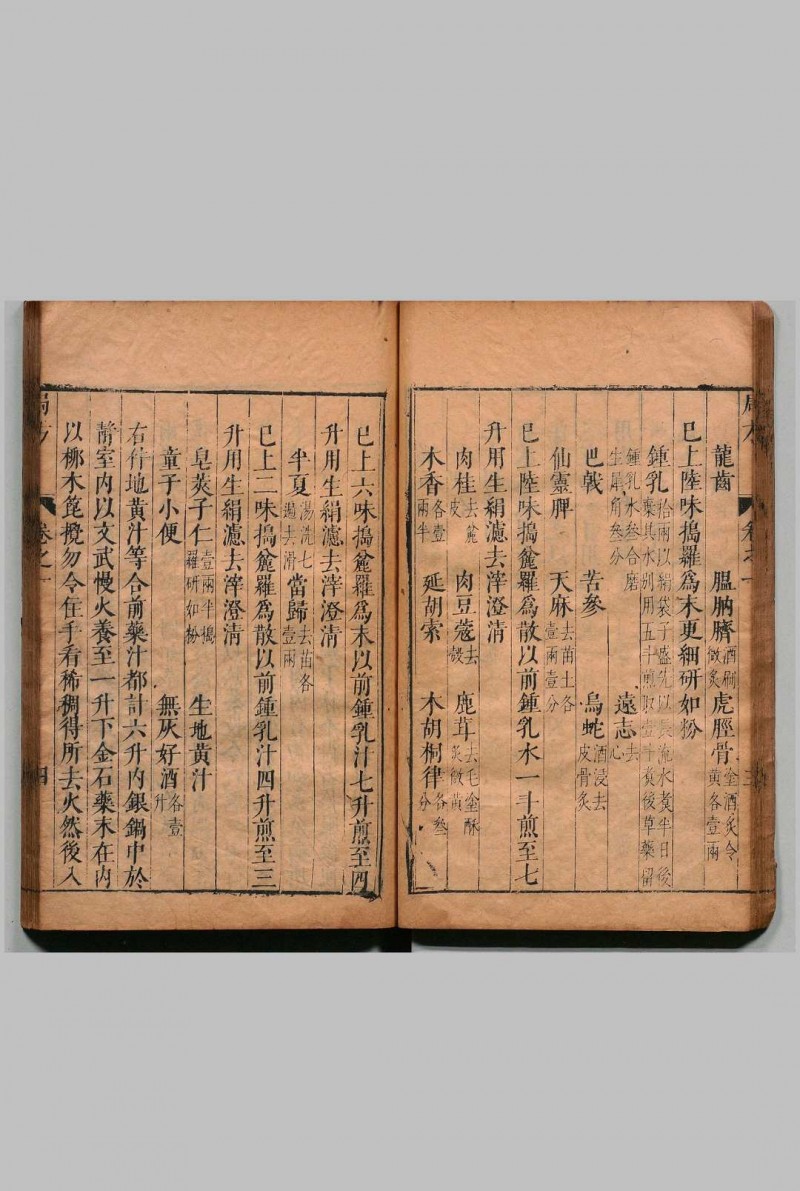 龍齒 膃肭臍酒刷微炙 虎脛骨塗酒炙令黄各壹兩
已上陸味搗羅爲末更細研如粉
鍾乳拾兩以絹袋子盛先以長流水煮半日後棄其水別用五斗煎取壹斗煮後草藥留
鍾乳水叁合磨生犀角叁分 遠志去心
巴戟 苦參 烏蛇酒浸去皮骨炙
仙靈脾 天麻去苗土各壹兩壹分
已上陸味搗麄羅爲散以前鍾乳水一斗煎至七
升用生絹濾去滓澄清
肉桂去麄皮 肉豆蔻去殼 鹿茸去毛塗酥炙微黄
木香各壹兩半 延胡索 木胡桐律各叁分
已上六味搗麄羅爲末以前鍾乳汁七升煎至四
升用生絹濾去滓澄清
半夏湯洗七遍去滑 當歸去苗各壹兩
已上二味搗麄羅爲散以前鍾乳汁四升煎至三
升用生絹濾去滓澄清
皂莢子仁壹兩半搗羅研如粉 生地黄汁
童子小便 無灰好酒各壹升
右件地黄汁等合前藥汁都計六升内銀鍋中於
静室内以文武慢火養至一升下金石藥末在内
以柳木箆攪勿令住手看稀稠得所去火然後入
局方 卷之一 三
局方 卷之一 四